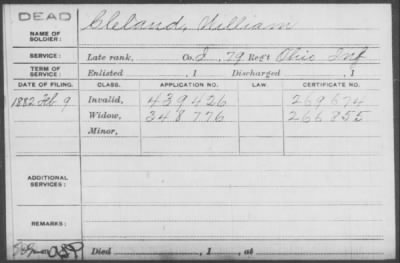 DEAD
NAME OF SOLDIER: Cleland, William
SERVICE: Late rank, Co. I, 79 Reg't Ohio Inf
TERM OF SERVICE: Enlisted , 1 Discharged , 1
DATE OF FILING. CLASS. APPLICATION NO. LAW. CERTIFICATE NO.
1882 Feb. 9 Invalid, 439426 269674
Widow, 348776 266855
Minor,
ADDITIONAL SERVICES:
REMARKS:
Died , 1 , at